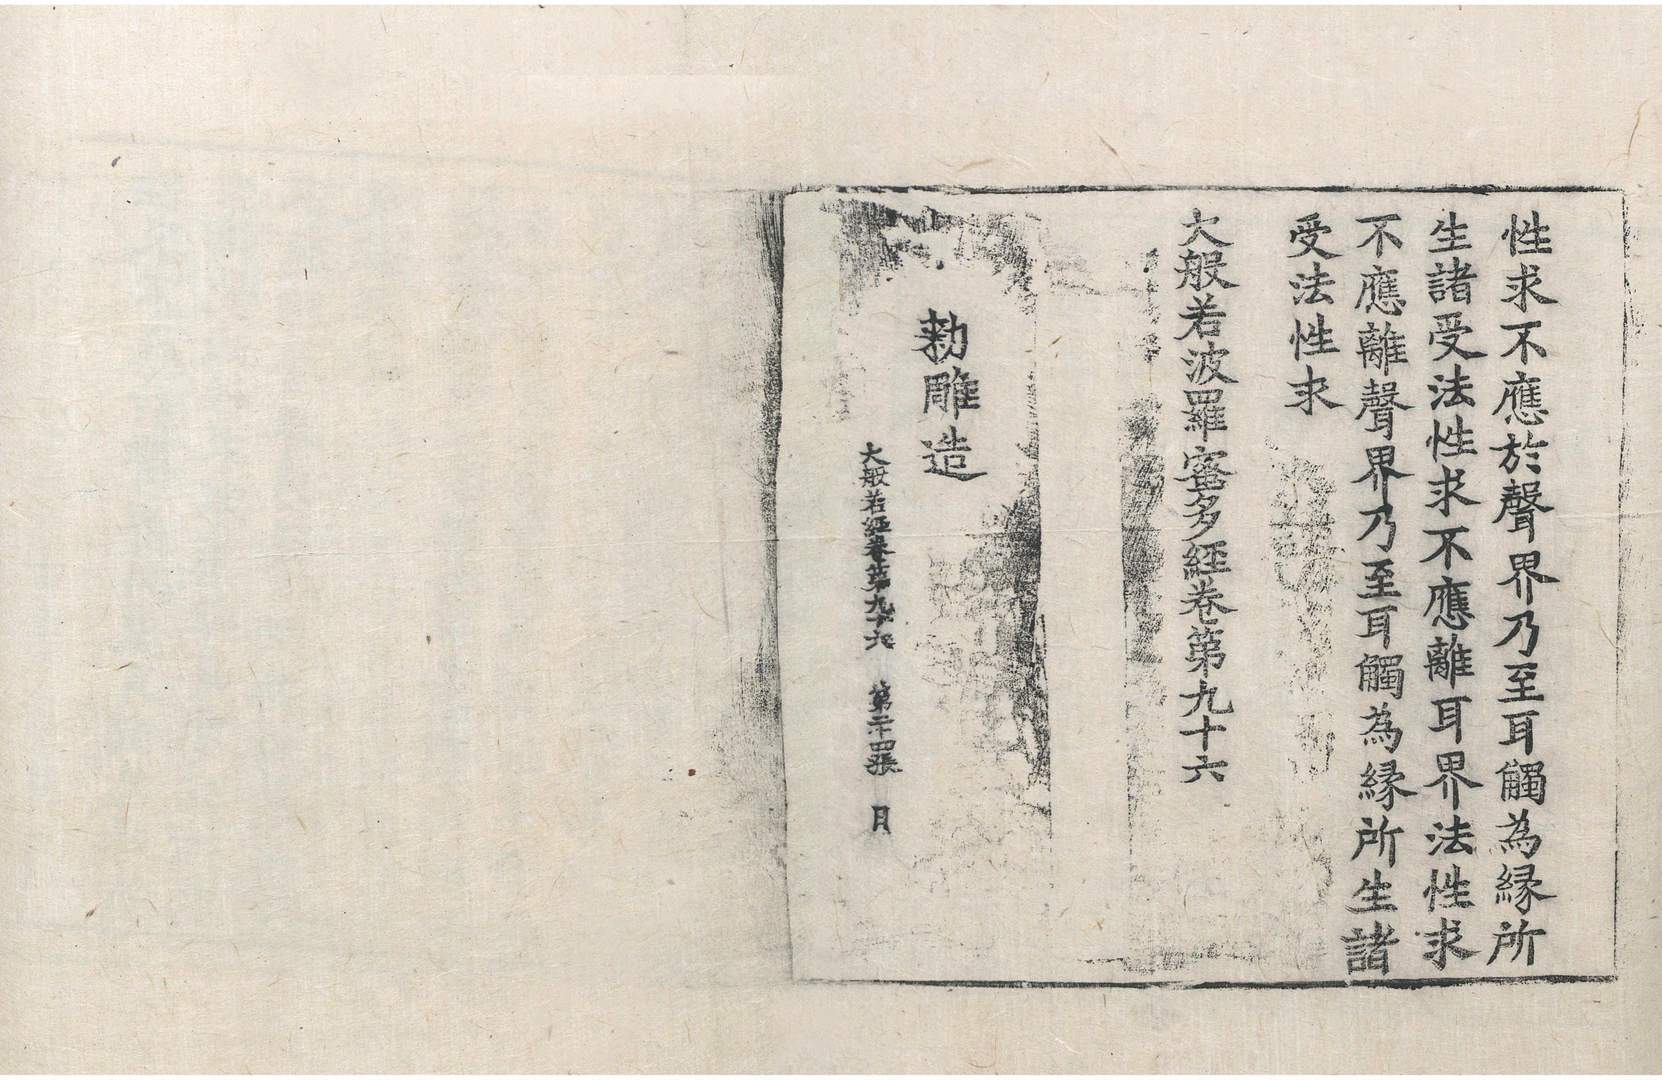 性求不應於聲界乃至耳觸為緣所
生諸受法性求不應離耳界法性求
不應離聲界乃至耳觸為緣所生諸
受法性求
大般若波羅蜜多經卷第九十六
勑雕造
大般若經卷第九十六 第二十四張 月